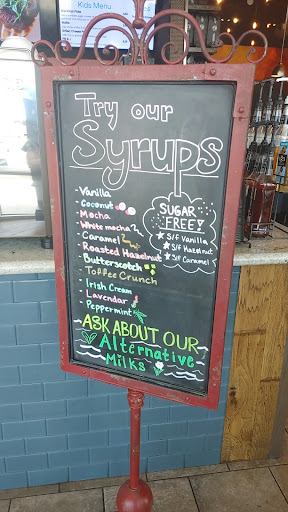 Kids Menu
Try our
Syrups
- Vanilla
- Coconut
- Mocha
- White mocha
- Caramel
- Roasted Hazelnut
- Butterscotch
- Toffee Crunch
- Irish Cream
- Lavendar
- Peppermint
SUGAR
FREE!
★ S/f Vanilla
★ S/f Hazelnut
★ S/f Caramel
ASK ABOUT OUR
Alternative
Milks